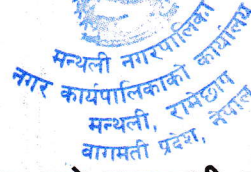 मन्थली नगरपालिका
नगर कार्यपालिकाको कार्यालय
मन्थली, रामेछाप
वागमती प्रदेश, नेपाल